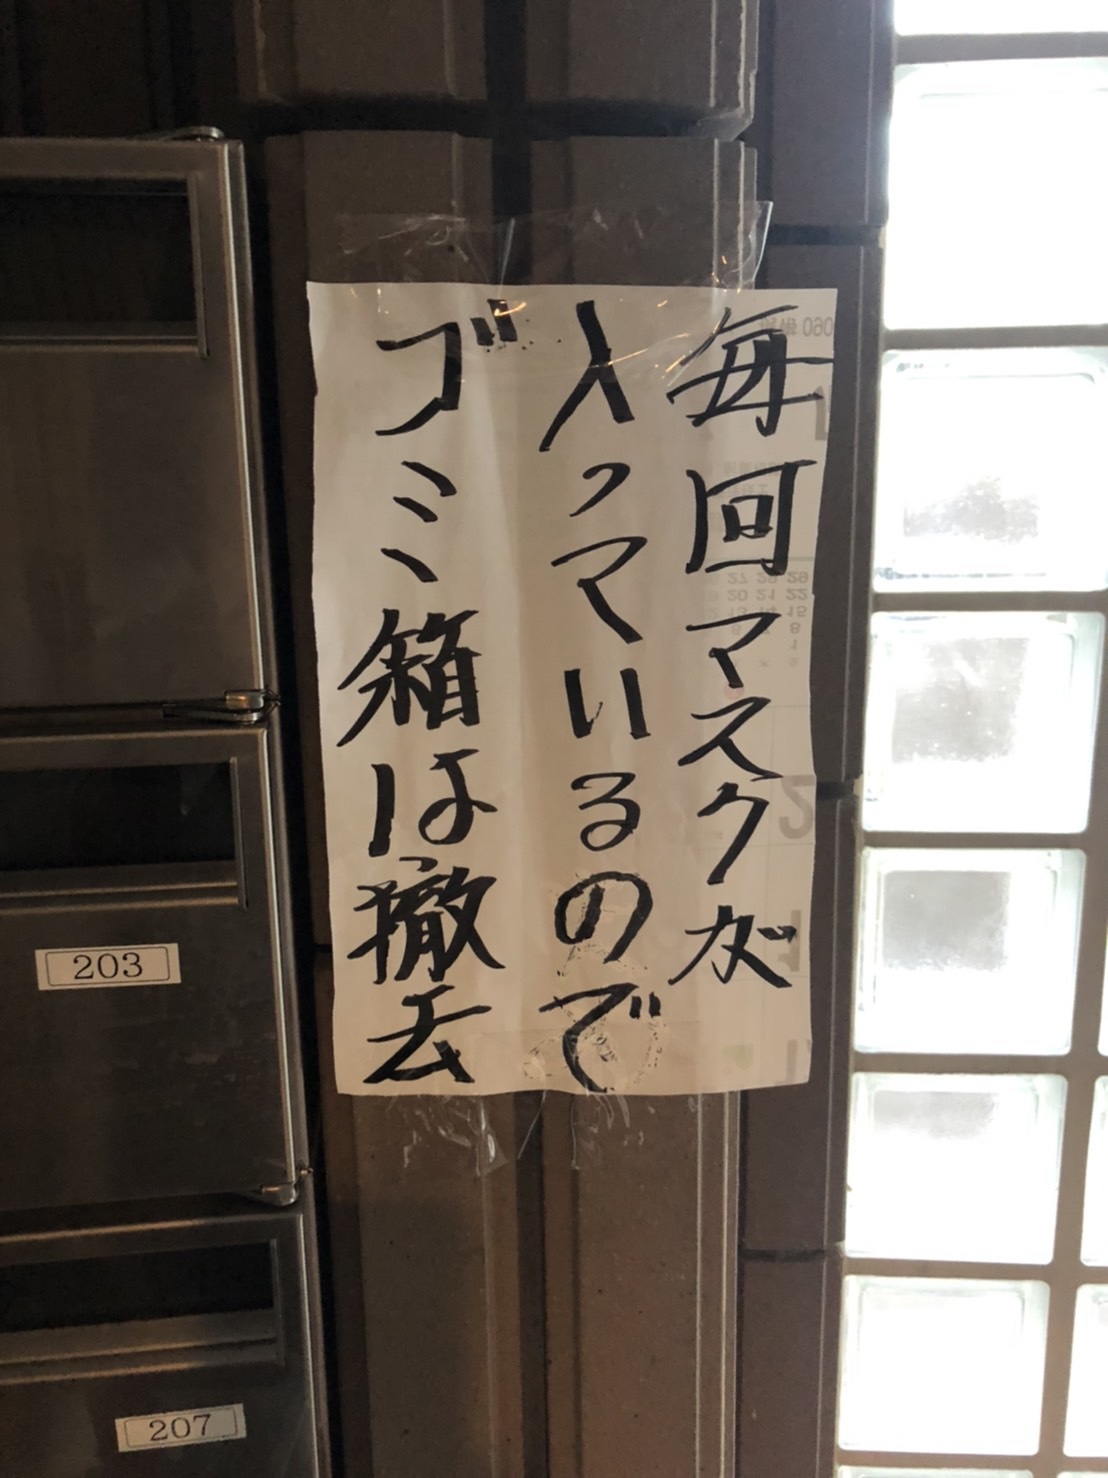 毎回マスクが
入っているので
ゴミ箱は撤去
203
207